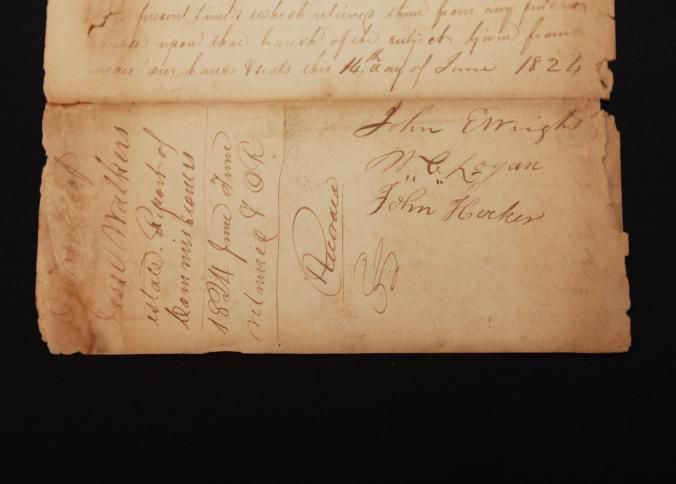 present time; which relieves them from any further
upon that branch of the subject Given from
under our hands & seals this 14th day of June 1824
John E Wright
W. C. Logan
John Hocker
Jesse Walkers
estate. Report of
Commissioners
1824 June Term
returned & OR.
Recorded